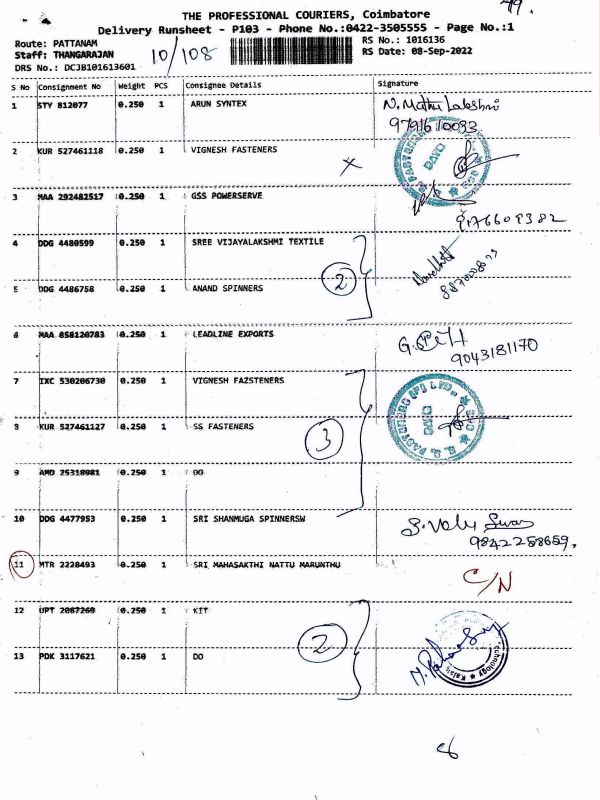 THE PROFESSIONAL COURIERS, Coimbatore
Delivery Runsheet - P103 - Phone No.:0422-3505555 - Page No.:1
Route: PATTANAM
Staff: THANGARAJAN
DRS No.: DCJB101613601
10/108
RS No.: 1016136
RS Date: 08-Sep-2022
S No Consignment No Weight PCS Consignee Details Signature
1 STY 812077 0.250 1 ARUN SYNTEX
2 KUR 527461118 0.250 1 VIGNESH FASTENERS
3 MAA 292482517 0.250 1 GSS POWERSERVE
4 DDG 4480599 0.250 1 SREE VIJAYALAKSHMI TEXTILE
2
5 DDG 4486758 0.250 1 ANAND SPINNERS
6 MAA 858120783 0.250 1 LEADLINE EXPORTS
9043181170
7 IXC 530206730 0.250 1 VIGNESH FAZSTENERS
8 KUR 527461127 0.250 1 SS FASTENERS
3
9 AMD 25318981 0.250 1 DO
10 DDG 4477953 0.250 1 SRI SHANMUGA SPINNERSW
9842258659.
11 MTR 2228493 0.250 1 SRI MAHASAKTHI NATTU MARUNTHU
C/N
12 UPT 2087269 0.250 1 KIT
2
13 PDK 3117621 0.250 1 DO
8